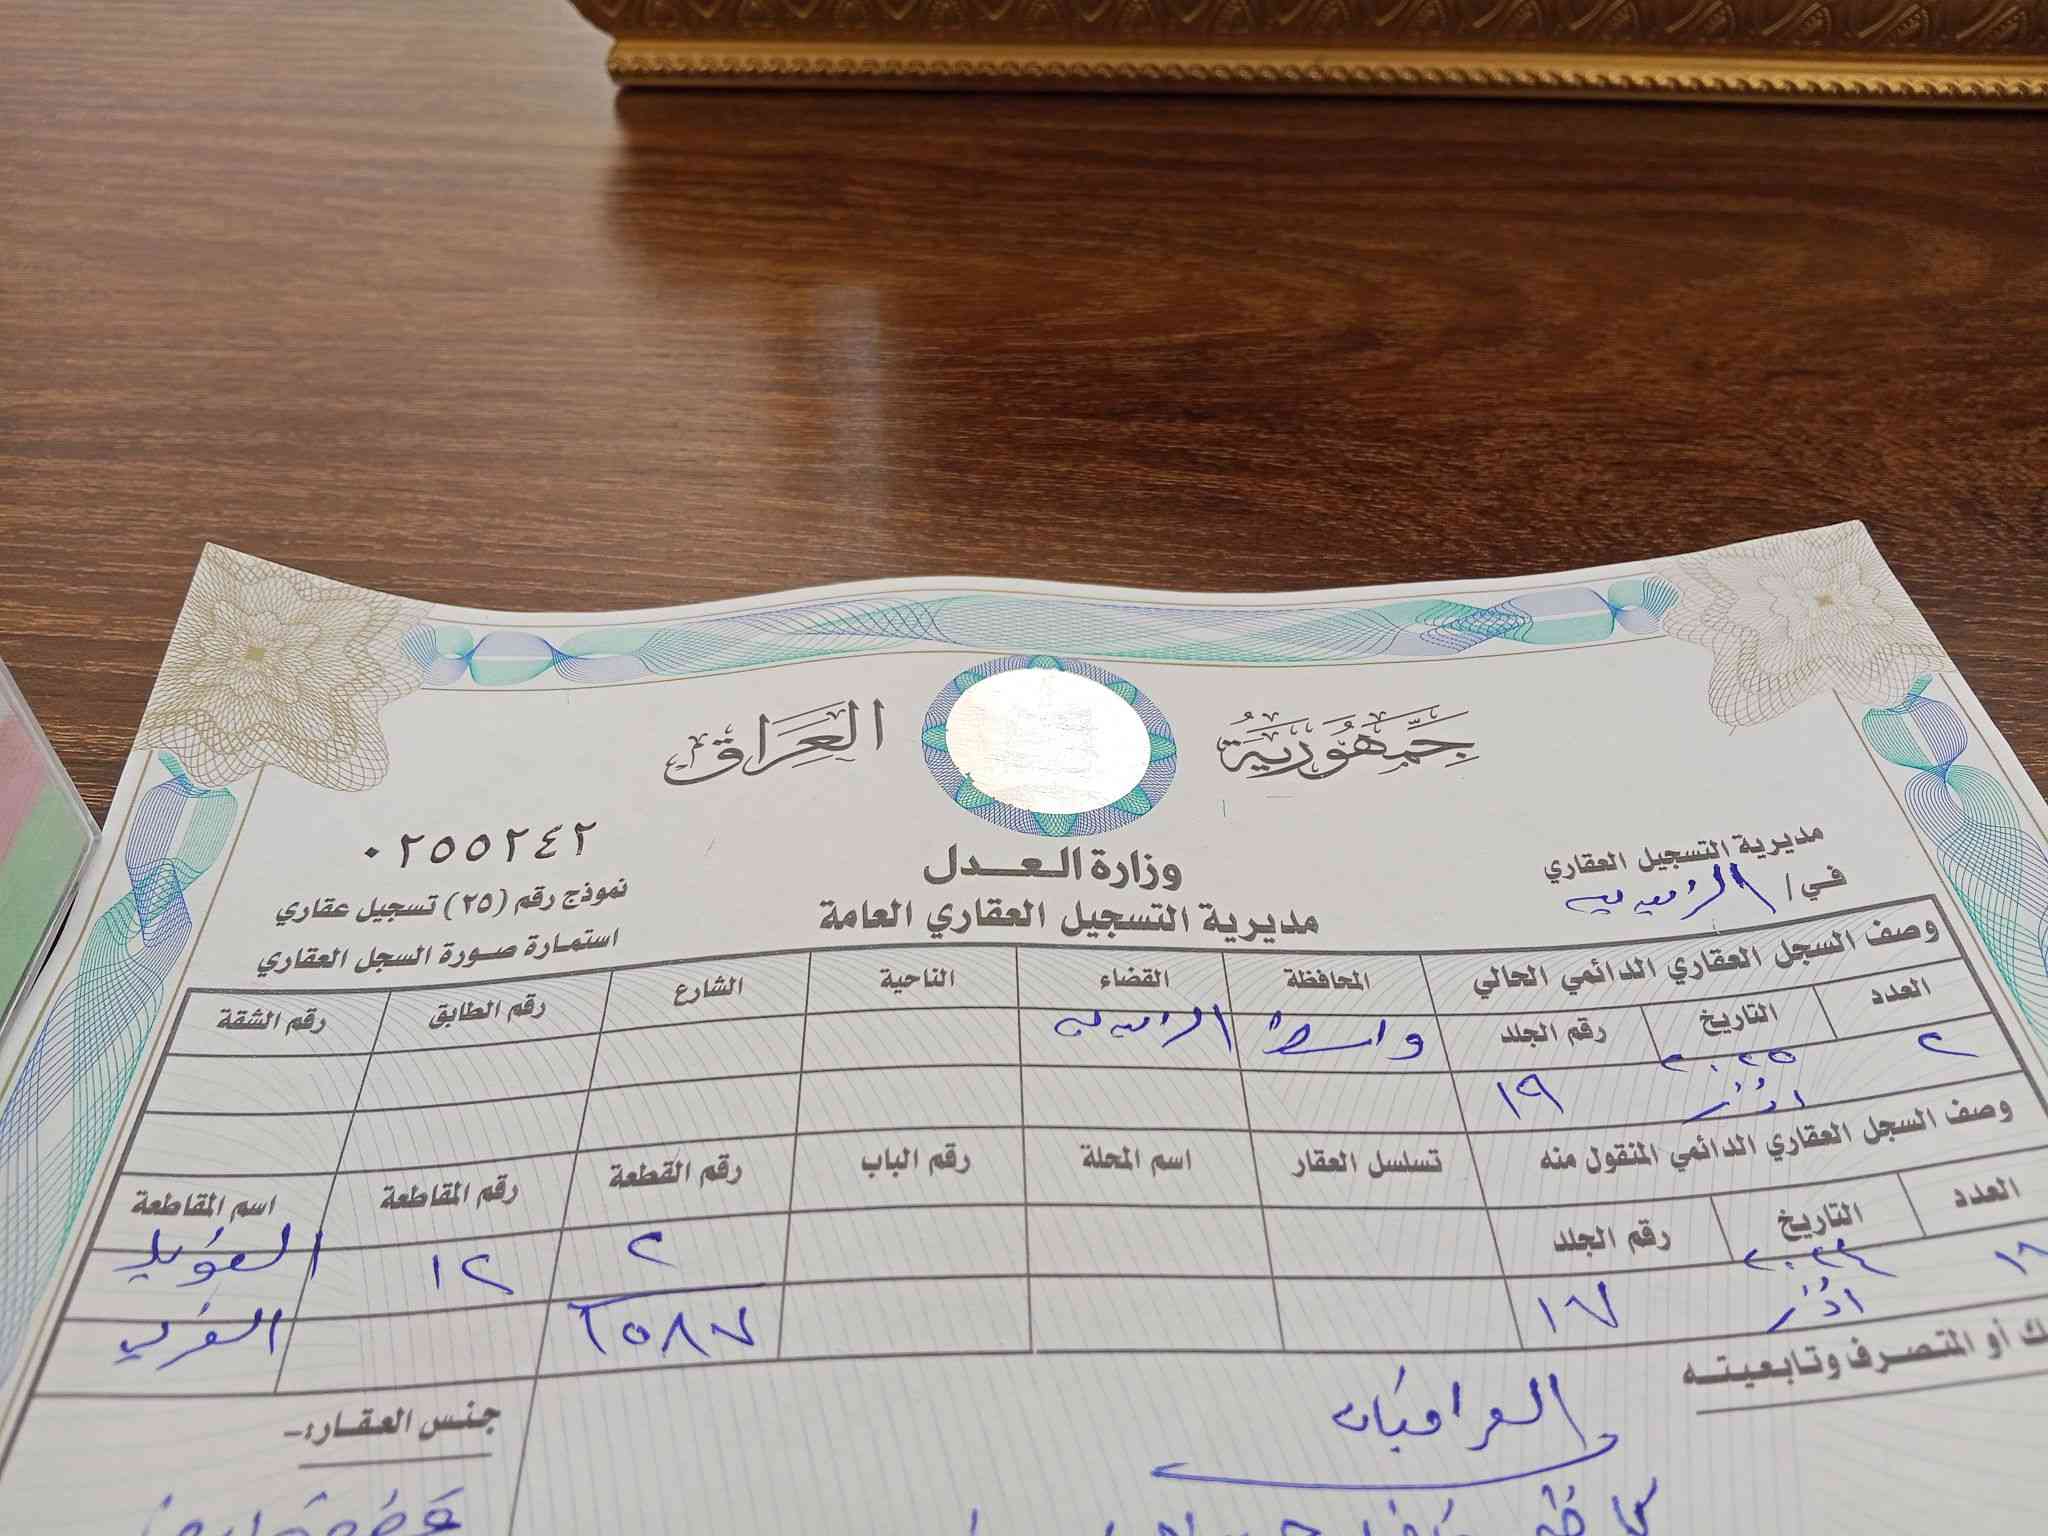 جمهورية العراق
٠٢٥٥٢٤٢
وزارة العدل
مديرية التسجيل العقاري
نموذج رقم (٢٥) تسجيل عقاري
مديرية التسجيل العقاري العامة
في /
استمارة صورة السجل العقاري
وصف السجل العقاري الدائمي الحالي المحافظة القضاء الناحية الشارع رقم الطابق رقم الشقة
العدد التاريخ رقم الجلد واسط
٢ ٢٠٢٥ آذار ١٩
وصف السجل العقاري الدائمي المنقول منه تسلسل العقار اسم المحلة رقم الباب رقم القطعة رقم المقاطعة اسم المقاطعة
العدد التاريخ رقم الجلد ٢ ١٢
٢٠٢٤ آذار ١٧ ٦٥٨٧
أو المتصرف وتابعيته
جنس العقار:-